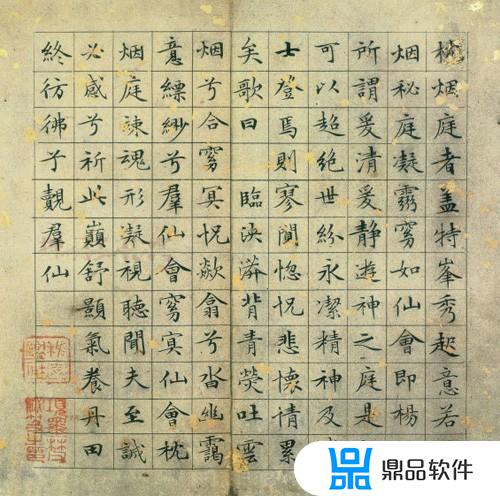 枕烟庭者盖特峯秀起意若
烟秘庭凝靄窅如仙會即楊
所謂爰清爰静遊神之庭是
可以超絶世紛永潔精神及
士登焉則寥闃惚怳悲懷情累
矣歌曰 臨泱漭背青熒吐雲
烟兮合窅冥怳欻翕兮沓幽靄
意縹緲兮羣仙會窅冥仙會枕
烟庭竦魂形凝視聽聞夫至誠
必感兮祈此巔舒顥氣養丹田
終彷彿兮覿羣仙
鼎品软件